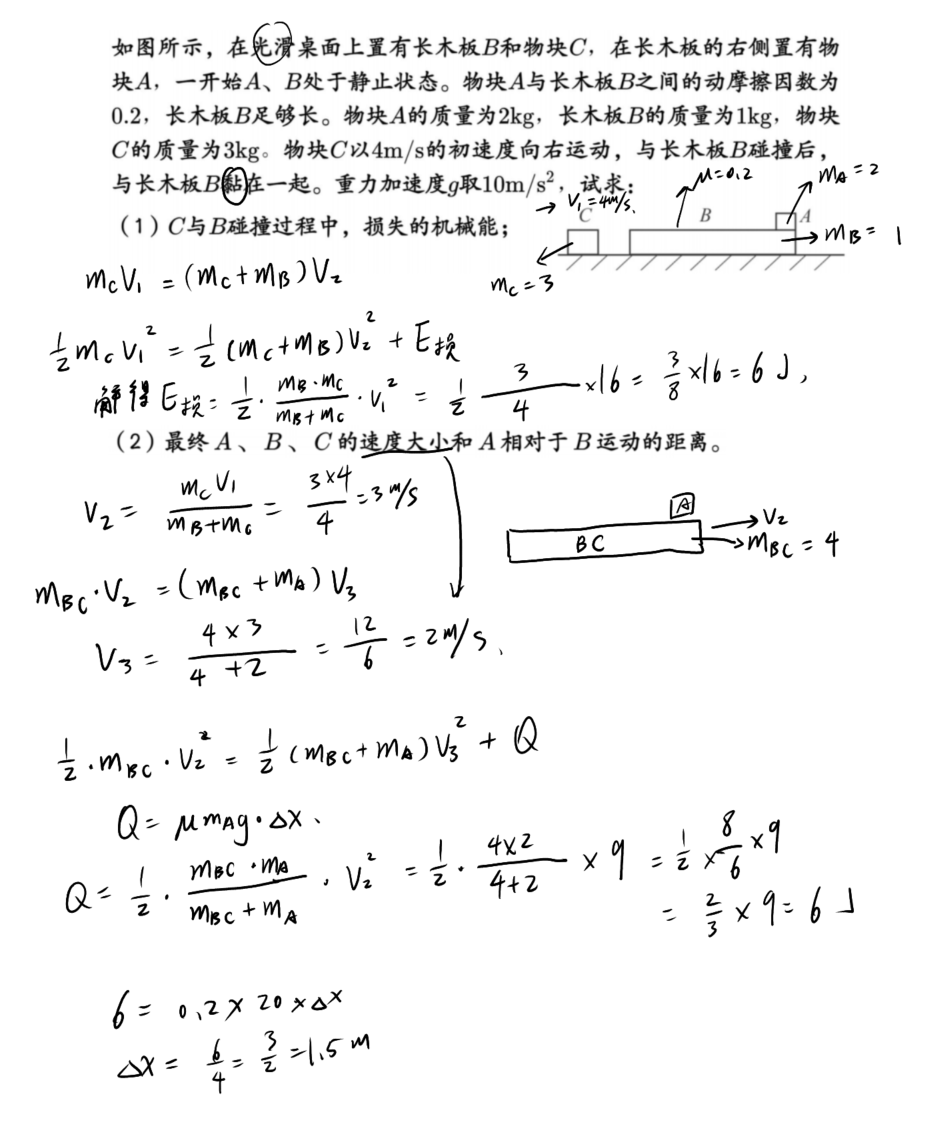 如图所示，在光滑桌面上置有长木板B和物块C，在长木板的右侧置有物
块A，一开始A、B处于静止状态。物块A与长木板B之间的动摩擦因数为
0.2，长木板B足够长。物块A的质量为2kg，长木板B的质量为1kg，物块
C的质量为3kg。物块C以4m/s的初速度向右运动，与长木板B碰撞后，
与长木板B黏在一起。重力加速度g取10m/s²，试求：
μ=0.2
m_A=2
→ V₁=4m/s.
C
B
A
m_B= 1
m_C=3
（1）C与B碰撞过程中，损失的机械能；
m_C V₁ = (m_C+m_B)V₂
½ m_C V₁² = ½ (m_C+m_B)V₂² + E损
解得 E损 = ½ · (m_B·m_C)/(m_B+m_C) · V₁² = ½ 3/4 ×16 = 3/8 ×16 = 6 J,
（2）最终A、B、C的速度大小和A相对于B运动的距离。
V₂ = m_C V₁/(m_B+m_C) = 3×4/4 = 3 m/s
A
BC
→V₂
→m_BC = 4
m_BC·V₂ = (m_BC+m_A) V₃
V₃ = 4×3/(4+2) = 12/6 = 2 m/s.
½·m_BC·V₂² = ½ (m_BC+m_A)V₃² + Q
Q= μm_Ag·Δx.
Q= ½ · (m_BC·m_A)/(m_BC+m_A) · V₂² = ½ · 4×2/(4+2) × 9 = ½ × 8/6 ×9
= 2/3 × 9= 6 J
6= 0.2×20×Δx
Δx = 6/4 = 3/2 =1.5 m